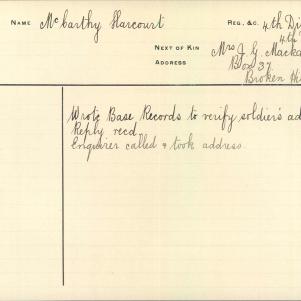 NAME McCarthy Harcourt
REG, &C. 4th Di
4th
NEXT OF KIN Mrs J. G. Macka
ADDRESS Box 37
Broken Hi
Wrote Base Records to verify soldier's ad
Reply recd.
Enquirer called & took address.